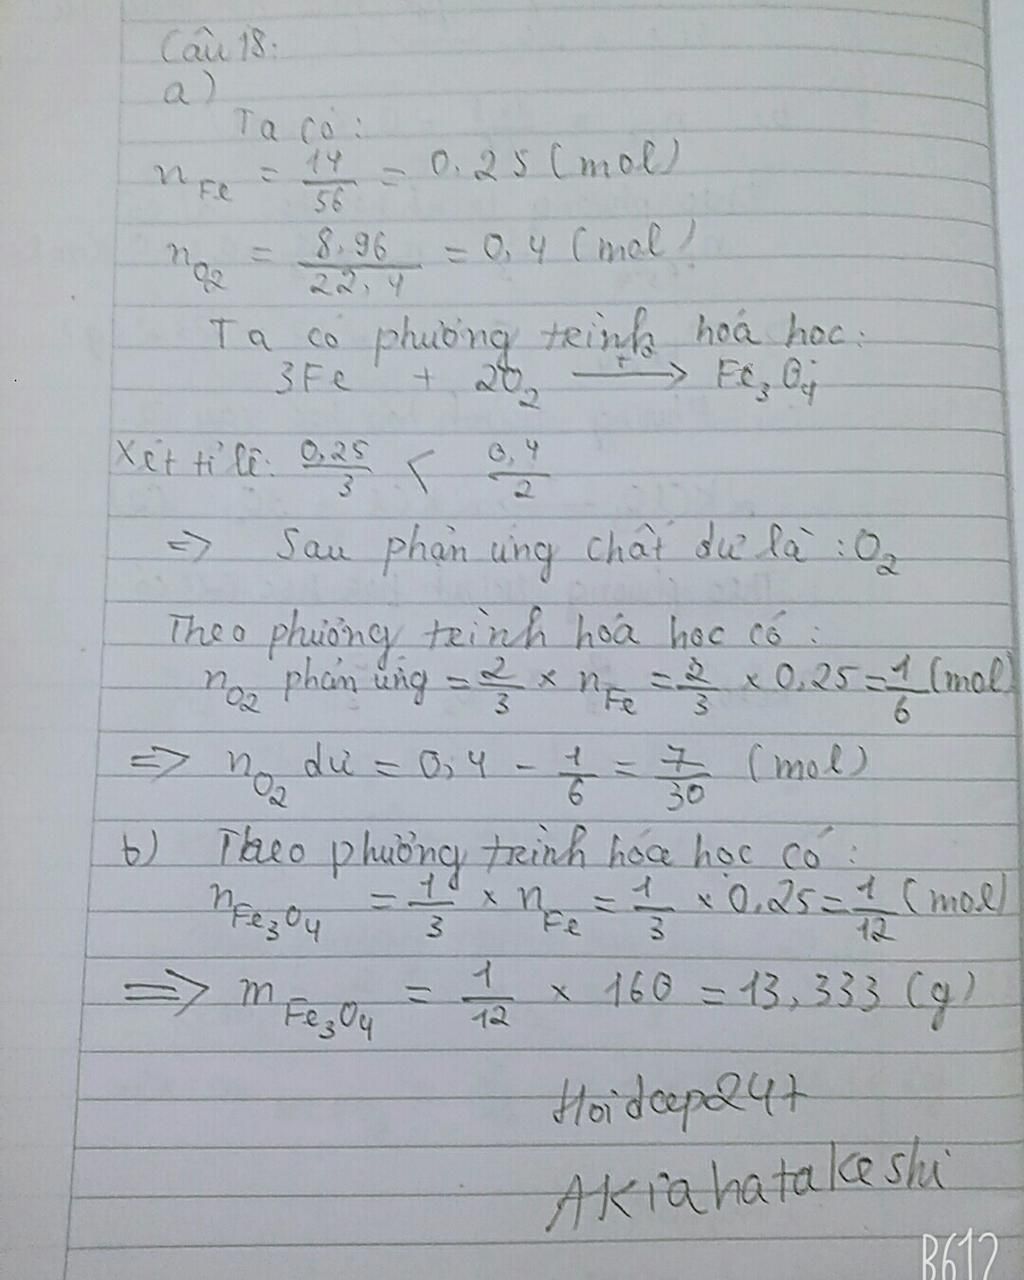 Câu 18:
a)
Ta có:
n Fe = 14/56 = 0.25 (mol)
n O2 = 8.96/22,4 = 0,4 (mol)
Ta có phương trình hoá học:
3Fe + 2O2 —t°→ Fe3O4
Xét tỉ lệ: 0,25/3 < 0,4/2
=> Sau phản ứng chất dư là : O2
Theo phương trình hoá học có :
n O2 phản ứng = 2/3 × n Fe = 2/3 × 0.25 = 1/6 (mol)
=> n O2 dư = 0,4 - 1/6 = 7/30 (mol)
b) Theo phương trình hóa học có :
n Fe3O4 = 1/3 × n Fe = 1/3 × 0.25 = 1/12 (mol)
=> m Fe3O4 = 1/12 × 160 = 13,333 (g)
Hoidcep24+
AKiahatakeshi
B612